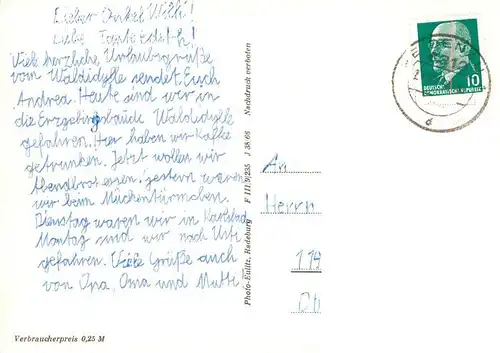 Lieber Onkel Willi!
Liebe Tante Edith!
Viele herzliche Urlaubsgrüße
vom Waldidylle sendet Euch
Andrea. Heute sind wir in
die Erzgebirgsbaude Waldidylle
gefahren. Hier haben wir Kaffe
getrunken. Jetzt wollen wir
Abendbrot essen. gestern waren
wir beim Mückentürmchen.
Dienstag waren wir in Karlsbad
Montag sind wir nach Usti
gefahren. Viele Grüße auch
von Opa, Oma und Mutti.
Verbraucherpreis 0,25 M
Photo-Eulitz, Radeburg F III/9/235 J 38/66 Nachdruck verboten
10
DEUTSCHE
DEMOKRATISCHE REPUBLIK
d
An
Herrn